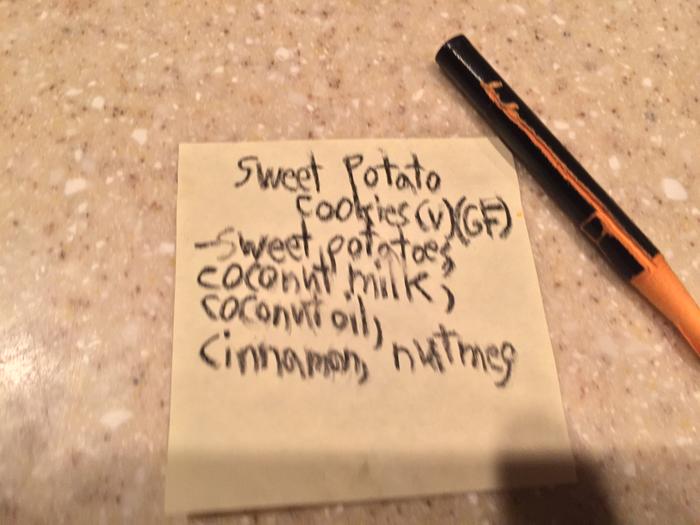 Sweet Potato
Cookies (V)(GF)
-Sweet potatoes,
coconut milk,
coconut oil,
Cinnamon, nutmeg